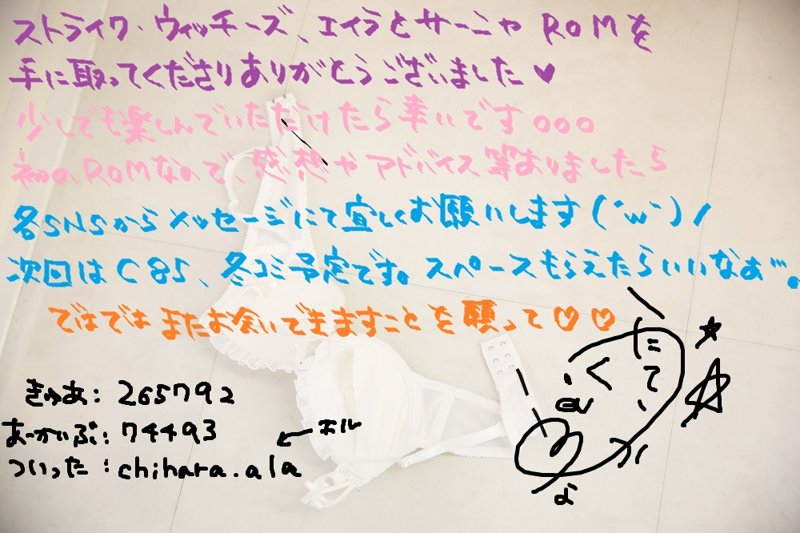 ストライク・ウィッチーズ、エイラとサーニャ ROMを
手に取ってくださりありがとうございました♥
少しでも楽しんでいただけたら幸いです。。。
初のROMなので、感想やアドバイス等ありましたら
各SNSからメッセージにて宜しくお願いします(´w`)ノ
次回はC85、冬コミ予定です。スペースもらえたらいいなぁ"。
ではでは またお会いできますことを願って♡♡
きゅあ：265792
あーかいぶ：74493
←ホル
ついった：chihara.ala